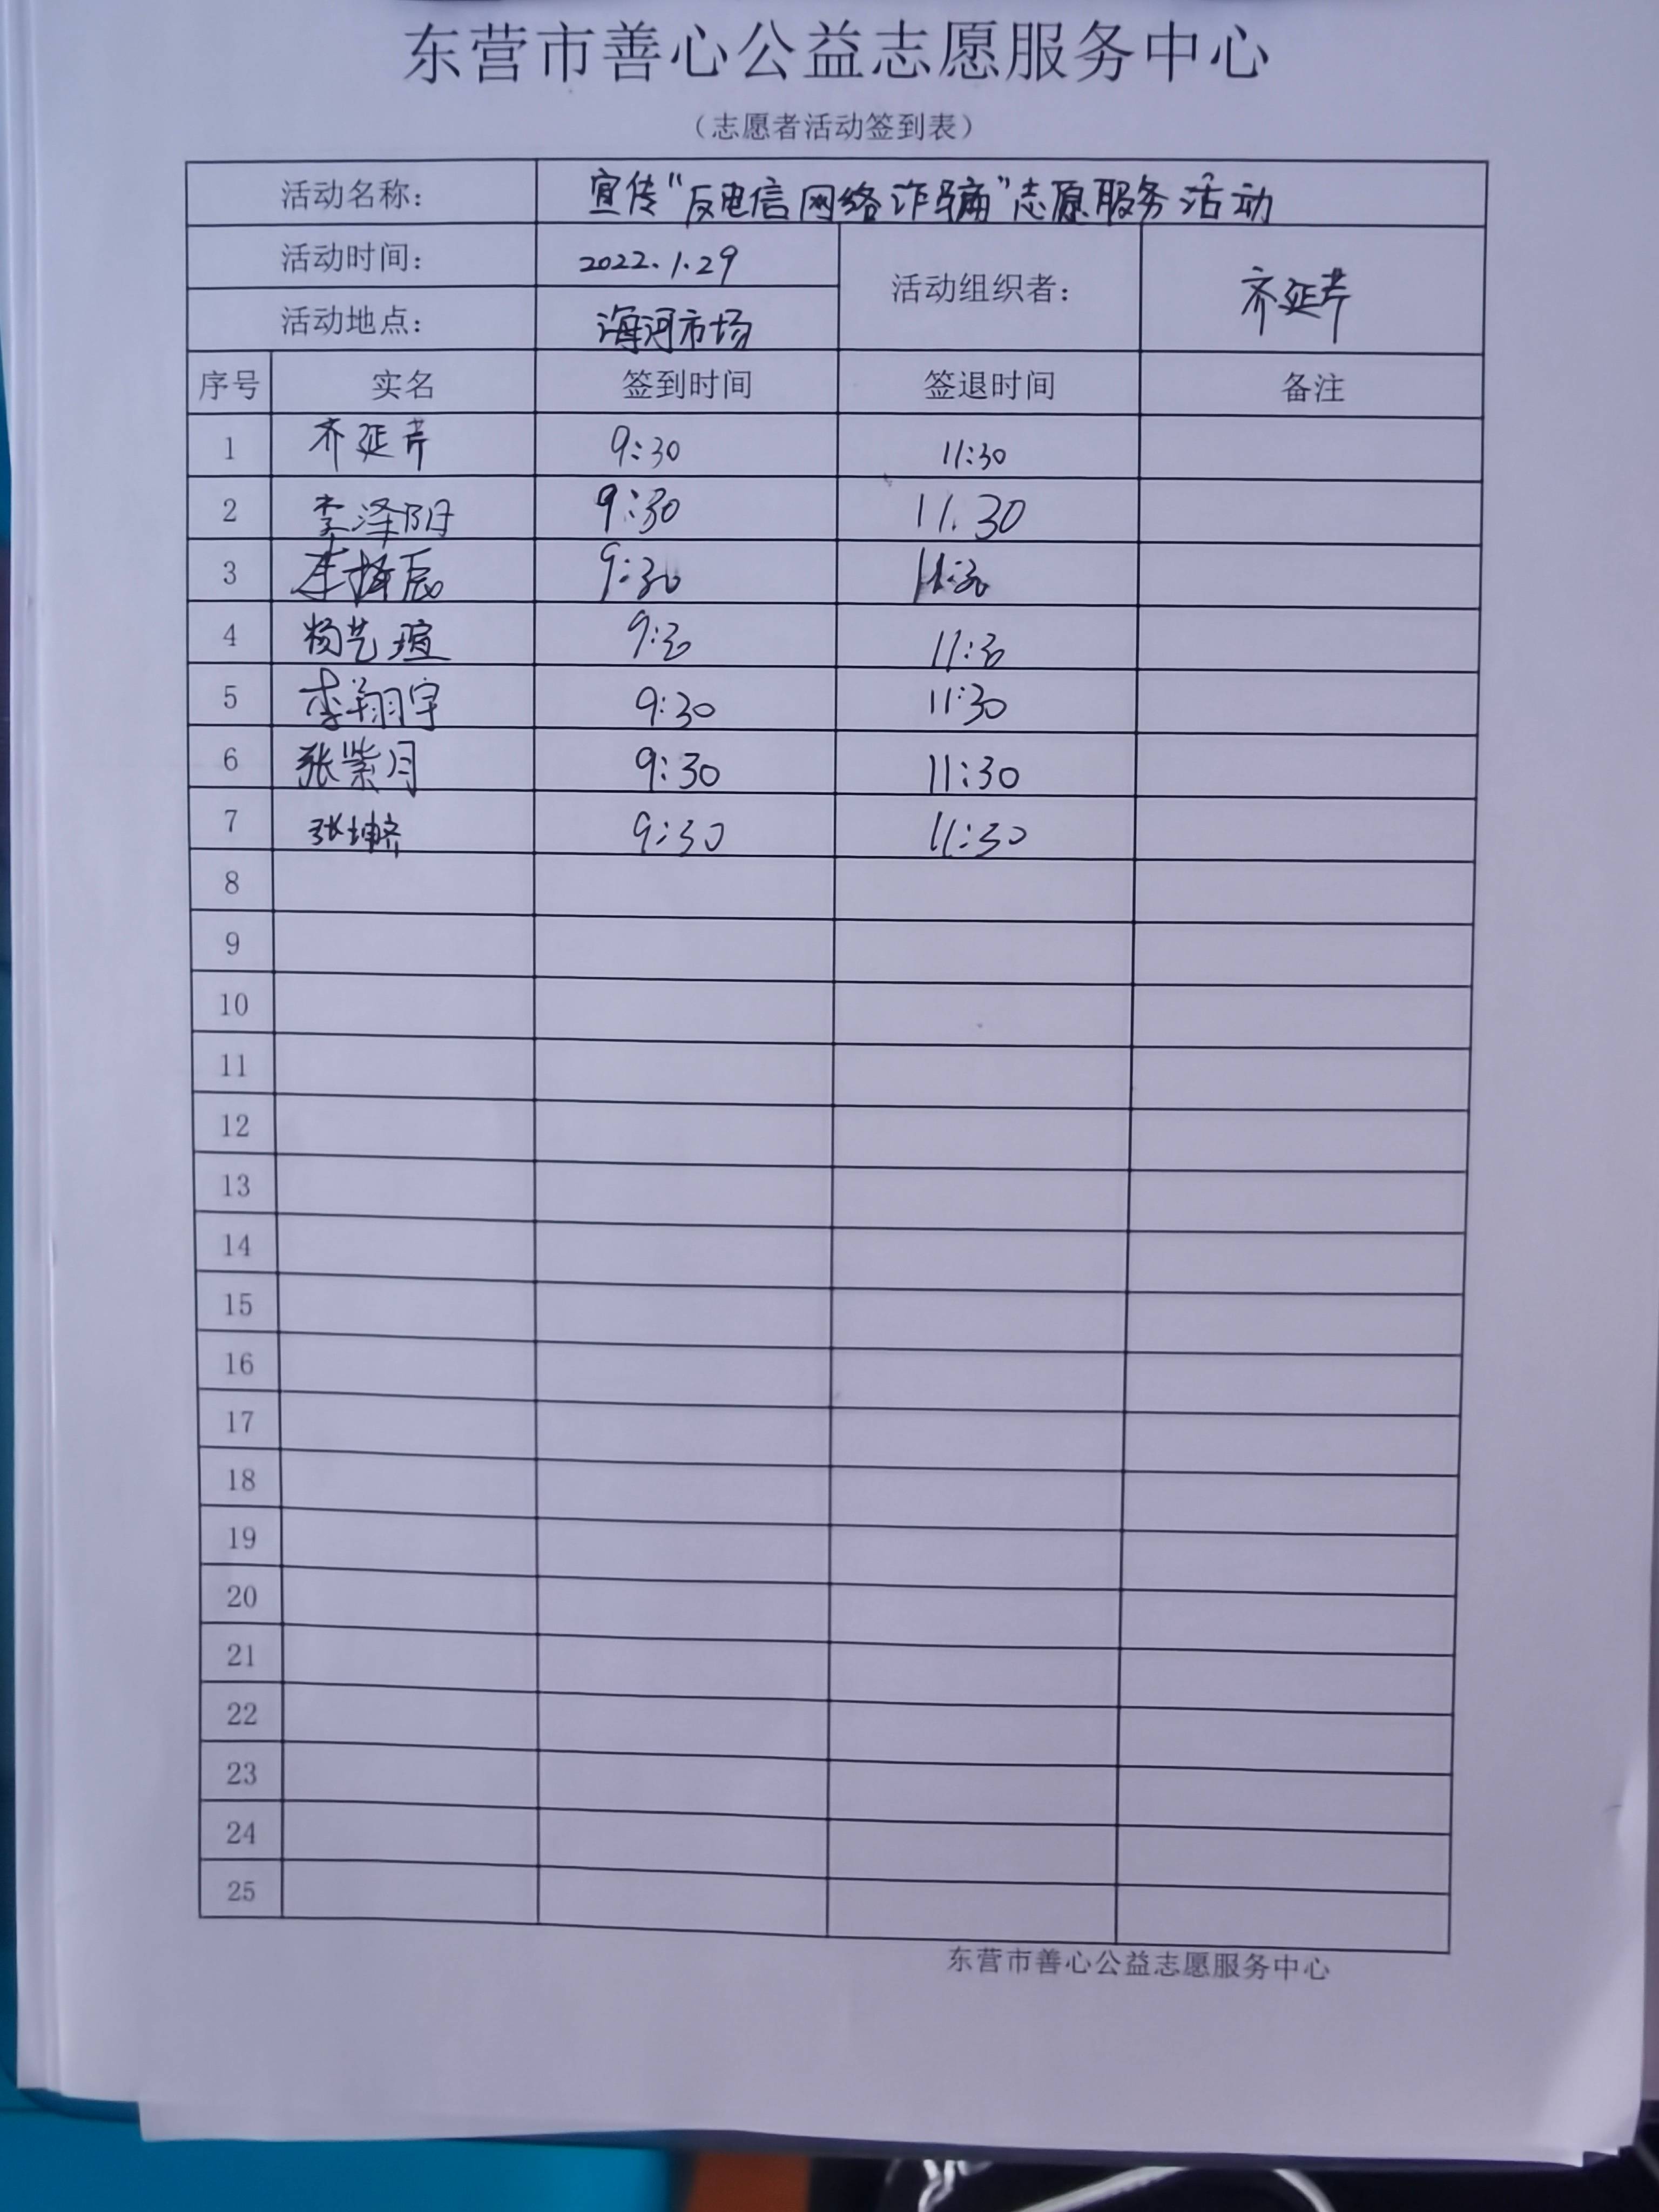 东营市善心公益志愿服务中心
（志愿者活动签到表）
活动名称： 宣传“反电信网络诈骗”志愿服务活动
活动时间： 2022.1.29 活动组织者： 齐延芹
活动地点： 海河市场
序号 实名 签到时间 签退时间 备注
1 齐延芹 9:30 11:30
2 李泽阳 9:30 11.30
3 李择辰 9:30 11:30
4 杨艺瑄 9:30 11:30
5 李翔宇 9:30 11:30
6 张紫月 9:30 11:30
7 张坤 9:30 11:30
8
9
10
11
12
13
14
15
16
17
18
19
20
21
22
23
24
25
东营市善心公益志愿服务中心